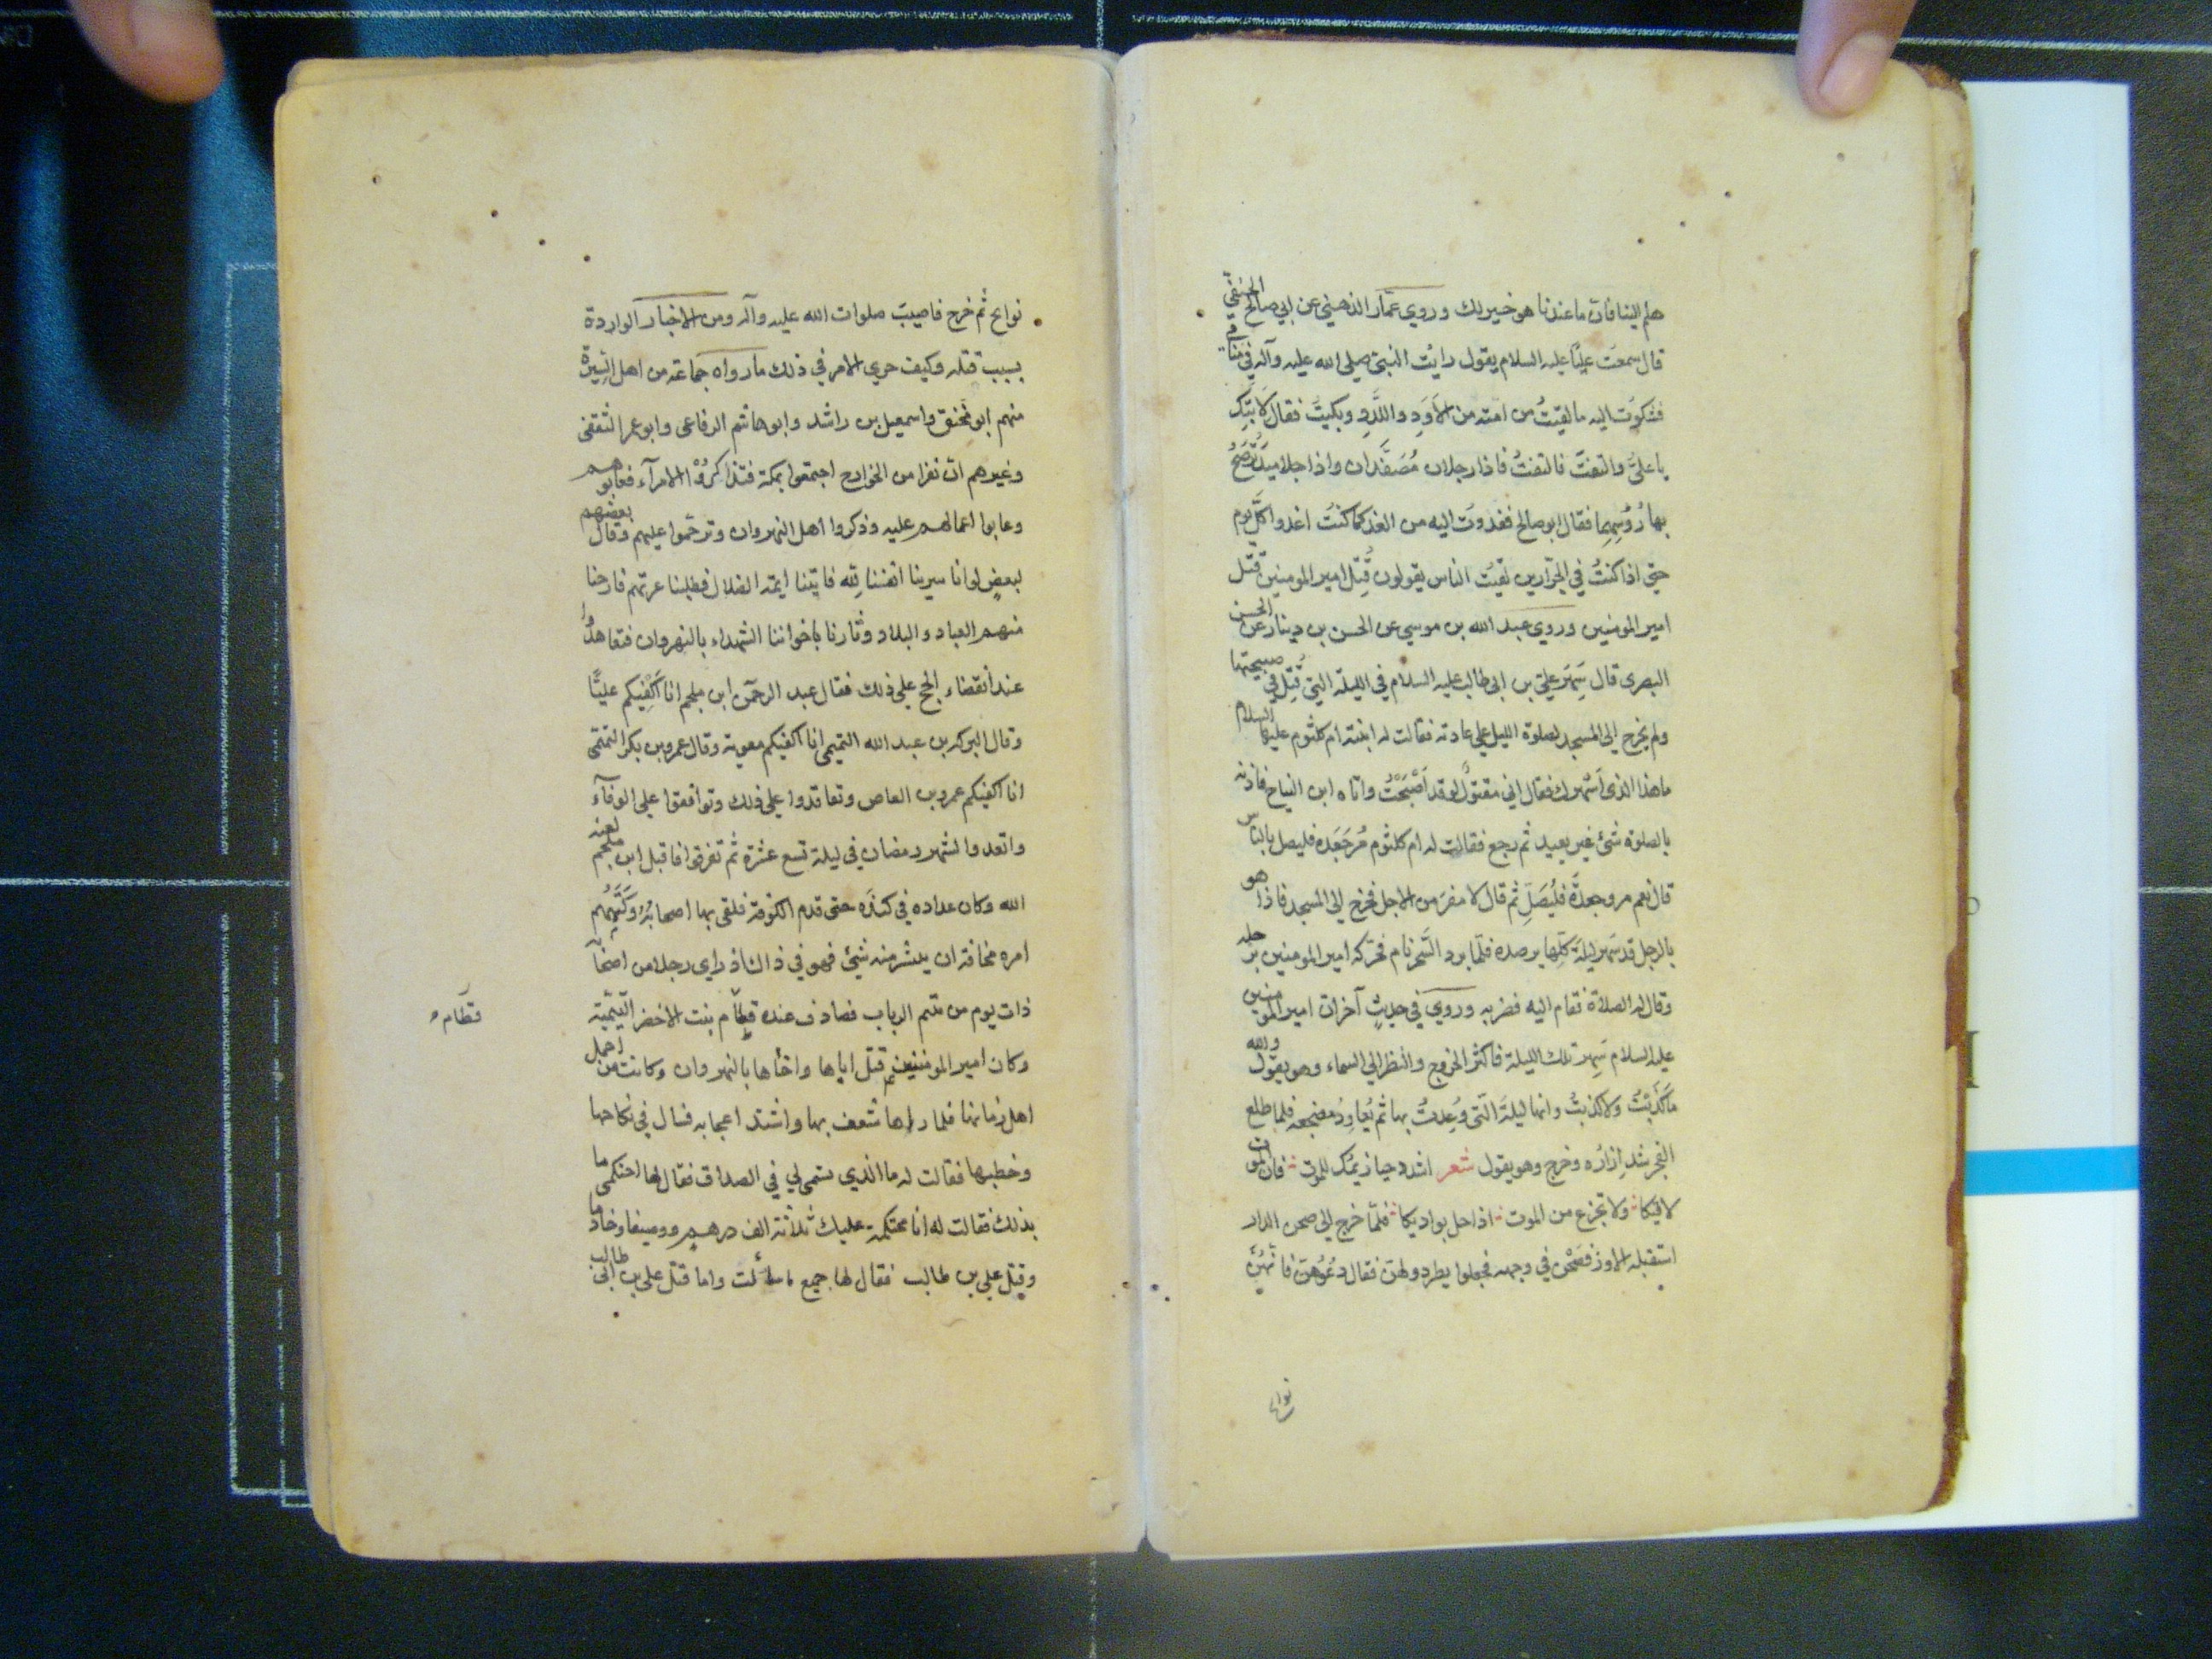 هلم الينا فان ما عندنا هو خير لك وروي عمار الدهني عن ابي صالح الحنفي
قال سمعت عليًا عليه السلام يقول رايت النبي صلى الله عليه وآله في منامي
فشكوت اليه ما لقيتُ من امته من الاَوَدِ واللَّدَدِ وبكيتُ فقال لا تبكِ
يا عليُّ والتفت فالتفتُ فاذا رجلان مُصَفَّدان واذا جلاميدُ تُرضَخُ
بها رؤسهما فقال ابو صالح فغدوت اليه من الغد كما كنتُ اغدوا كلَّ يوم
حتى اذا كنتُ في الجزّارين لقيتُ الناس يقولون قُتِل امير المومنين قتل
امير المومنين وروي عبد الله بن موسي عن الحسن بن دينار عن الحسن
البصرى قال سَهِرَ عليّ بن ابى طالب عليه السلام في الليلة التي قُتِل في صبيحتها
ولم يخرج الى المسجد لصلوة الليل علي عادته فقالت له ابنته ام كلثوم عليها السلام
ما هذا الذى اَسْهرك فقال اني مقتولٌ لو قد اَصْبَحْتُ واتاه ابن النباح فاذنه
بالصلوة فمشى غير بعيد ثم رجع فقالت له ام كلثوم مُر جَعْدة فليصل بالناس
قال نعم مروا جعدةَ فليُصَلِّ ثم قال لا مفر من الاجل فخرج الي المسجد فاذا هو
بالرجل قد سَهر ليلَهَ كلّها يرصده فلمّا برد السَّحر نام فحركه امير المومنين برجله
وقال له الصلاة فقام اليه فضربه وروي في حديثٍ آخر ان امير المومنين
عليه السلام سَهِر تلك الليلة فاكثر الخروج والنظر الي السماء وهو يقول والله
ما كَذَبْتُ ولا كُذبتُ وانها ليلة الّتى وُعِدتُ بها ثم يُعاوِدُ مضجعه فلما طلع
الفجر شد اِزارَه وخرج وهو يقول شعر اشدد حيازيمَك للموت فان الموت
لاقيكا ولا تجزع من الموت اذا حل بواديكا فلمّا خرج الى صحن الدار
استقبله الاوز فصحن في وجهه فجعلوا يطردونهنّ فقال دعُوهنّ فانّهنّ
نوايح
نوايح ثم خرج فاصيب صلوات الله عليه وآله ومن الاخبار الواردة
بسبب قتله وكيف جري الامر في ذلك ما رواه جماعة من اهل السِّيَرة
منهم ابو مخنف واسمعيل بن راشد وابو هاشم الرفاعى وابو عمر الثقفى
وغيرهم ان نفرا من الخوارج اجتمعوا بمكة فتذاكرُوْا الامرآء فعابوهم
وعابوا اعمالهم عليه وذكروا اهل النهروان وترحّموا عليهم وقال بعضهم
لبعضٍ لو انا سيرينا انفسنا لله فاتينا ايمة الضلال فطلبنا عرتهم فارحنا
منهم العباد والبلاد وثارنا باخواننا الشهداء بالنهروان فتعاهدُوا
عند انقضاء الحج علي ذلك فقال عبد الرحمن ابن ملجم انا اَكْفِيْكم عليًّا
وقال البرك بن عبد الله التميمى انا اكفيكم معوية وقال عمرو بن بكر التميمى
انا اكفيكم عمرو بن العاص وتعاقدوا على ذلك وتوافقوا على الوفآء
واتعدوا لشهر رمضان في ليلة تسع عشرة ثم تفرقوا فاقبل ابن ملجم لعنه
الله وكان عداده في كندَه حتى قدم الكوفة فلقى بها اصحابَهُ وكَتَمَهُم
امره مخافة ان ينتشر منه شيئ فهو في ذاك اذ زاى رجلا من اصحابه
ذات يوم من تتم الرباب فصادف عنده قطام بنت الاخضر التّيميّة
قطَام
وكان امير المومنين قتل اباها واخاها بالنهروان وكانت من اجمل
اهل زمانها فلما راها شعف بها واشتد اعجابه فسال في نكاحها
وخطبها فقالت له ما الذي يسمى لي في الصداق فقال لها احتكمى ما
بذلك فقالت له انا محتكمة عليك ثلاثة الف درهم ووصيفا وخادما
وقتل علي بن طالب فقال لها جميع ما سألت واما قتل على بن ابى طالب